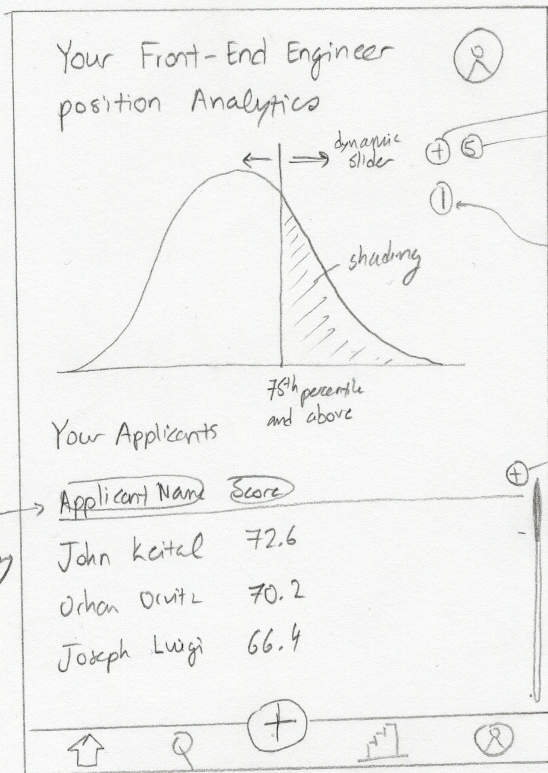 Your Front-End Engineer
position Analytics
dynamic
slider
+ 5
1
shading
75th percentile
and above
Your Applicants
+
Applicant Name Score
John Keital 72.6
Orhan 70.2
Joseph Luigi 66.4
+